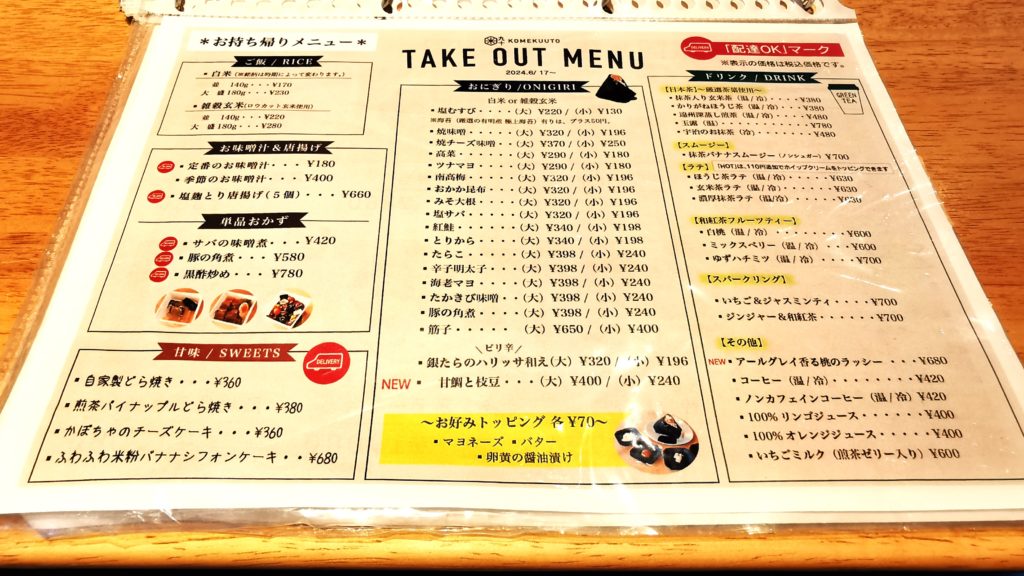 ＊お持ち帰りメニュー＊
ご飯 / RICE
▪白米（※銘柄は時期によって変わります。）
並　140g・・・¥170
大盛 180g・・・¥230
▪雑穀玄米（ロウカット玄米使用）
並　140g・・・¥220
大盛 180g・・・¥280
お味噌汁＆唐揚げ
▪定番のお味噌汁・・・¥180
▪季節のお味噌汁・・・¥400
▪塩麹とり唐揚げ（５個）・・・¥660
単品おかず
▪サバの味噌煮・・・¥420
▪豚の角煮・・・¥580
▪黒酢炒め・・・¥780
甘味 / SWEETS
DELIVERY
▪自家製どら焼き・・・¥360
▪煎茶パイナップルどら焼き・・・¥380
▪かぼちゃのチーズケーキ・・・¥360
▪ふわふわ米粉バナナシフォンケーキ・・¥680
KOMEKUUTO
TAKE OUT MENU
2024.6/ 17～
おにぎり/ONIGIRI
白米 or 雑穀玄米
▪塩むすび・・・・（大）¥220 /（小）¥130
※海苔（厳選の有明産 極上海苔）有りは、プラス50円。
▪焼味噌・・・・・（大）¥320 /（小）¥196
▪焼チーズ味噌・・（大）¥370 /（小）¥250
▪高菜・・・・・・（大）¥290 /（小）¥180
▪ツナマヨ・・・・（大）¥290 /（小）¥180
▪南高梅・・・・・（大）¥320 /（小）¥196
▪おかか昆布・・・（大）¥320 /（小）¥196
▪みそ大根・・・・（大）¥320 /（小）¥196
▪塩サバ・・・・・（大）¥320 /（小）¥196
▪紅鮭・・・・・・（大）¥340 /（小）¥198
▪とりから・・・・（大）¥340 /（小）¥198
▪たらこ・・・・・（大）¥398 /（小）¥240
▪辛子明太子・・・（大）¥398 /（小）¥240
▪海老マヨ・・・・（大）¥398 /（小）¥240
▪たかきび味噌・・（大）¥398 /（小）¥240
▪豚の角煮・・・・（大）¥398 /（小）¥240
▪筋子・・・・・・（大）¥650 /（小）¥400
＼ピリ辛／
▪銀たらのハリッサ和え（大）¥320 /（小）¥196
NEW ▪ 甘鯛と枝豆・・・（大）¥400 /（小）¥240
～お好みトッピング 各 ¥70～
▪マヨネーズ ▪バター
▪卵黄の醤油漬け
DELIVERY 「配達OK」マーク
※表示の価格は税込価格です。
ドリンク / DRINK
GREEN TEA
【日本茶】～厳選茶葉使用～
▪抹茶入り玄米茶（温 / 冷）・・・¥380
▪かりがねほうじ茶（温 / 冷）・・・¥380
▪遠州深蒸し煎茶（温 / 冷）・・・¥480
▪玉露（温 / 冷）・・・・¥780
▪宇治のお抹茶（温 / 冷）・・・¥480
【スムージー】
▪抹茶バナナスムージー（ノンシュガー）¥700
【ラテ】「HOT」は、110円追加でホイップクリームをトッピングできます
▪ほうじ茶ラテ（温 / 冷）・・・・¥630
▪玄米茶ラテ（温 / 冷）・・・・¥630
▪濃厚抹茶ラテ（温 / 冷）・・・・¥630
【和紅茶フルーツティー】
▪白桃（温 / 冷）・・・・・・¥600
▪ミックスベリー（温 / 冷）・・・¥600
▪ゆずハチミツ（温 / 冷）・・・¥700
【スパークリング】
▪いちご＆ジャスミンティ・・・・¥700
▪ジンジャー＆和紅茶・・・・・¥700
【その他】
NEW ▪アールグレイ香る桃のラッシー・・・¥680
▪コーヒー（温 / 冷）・・・・・・¥420
▪ノンカフェインコーヒー（温 / 冷）¥420
▪100% リンゴジュース・・・・・¥400
▪100% オレンジジュース・・・・¥400
▪いちごミルク（煎茶ゼリー入り）¥600